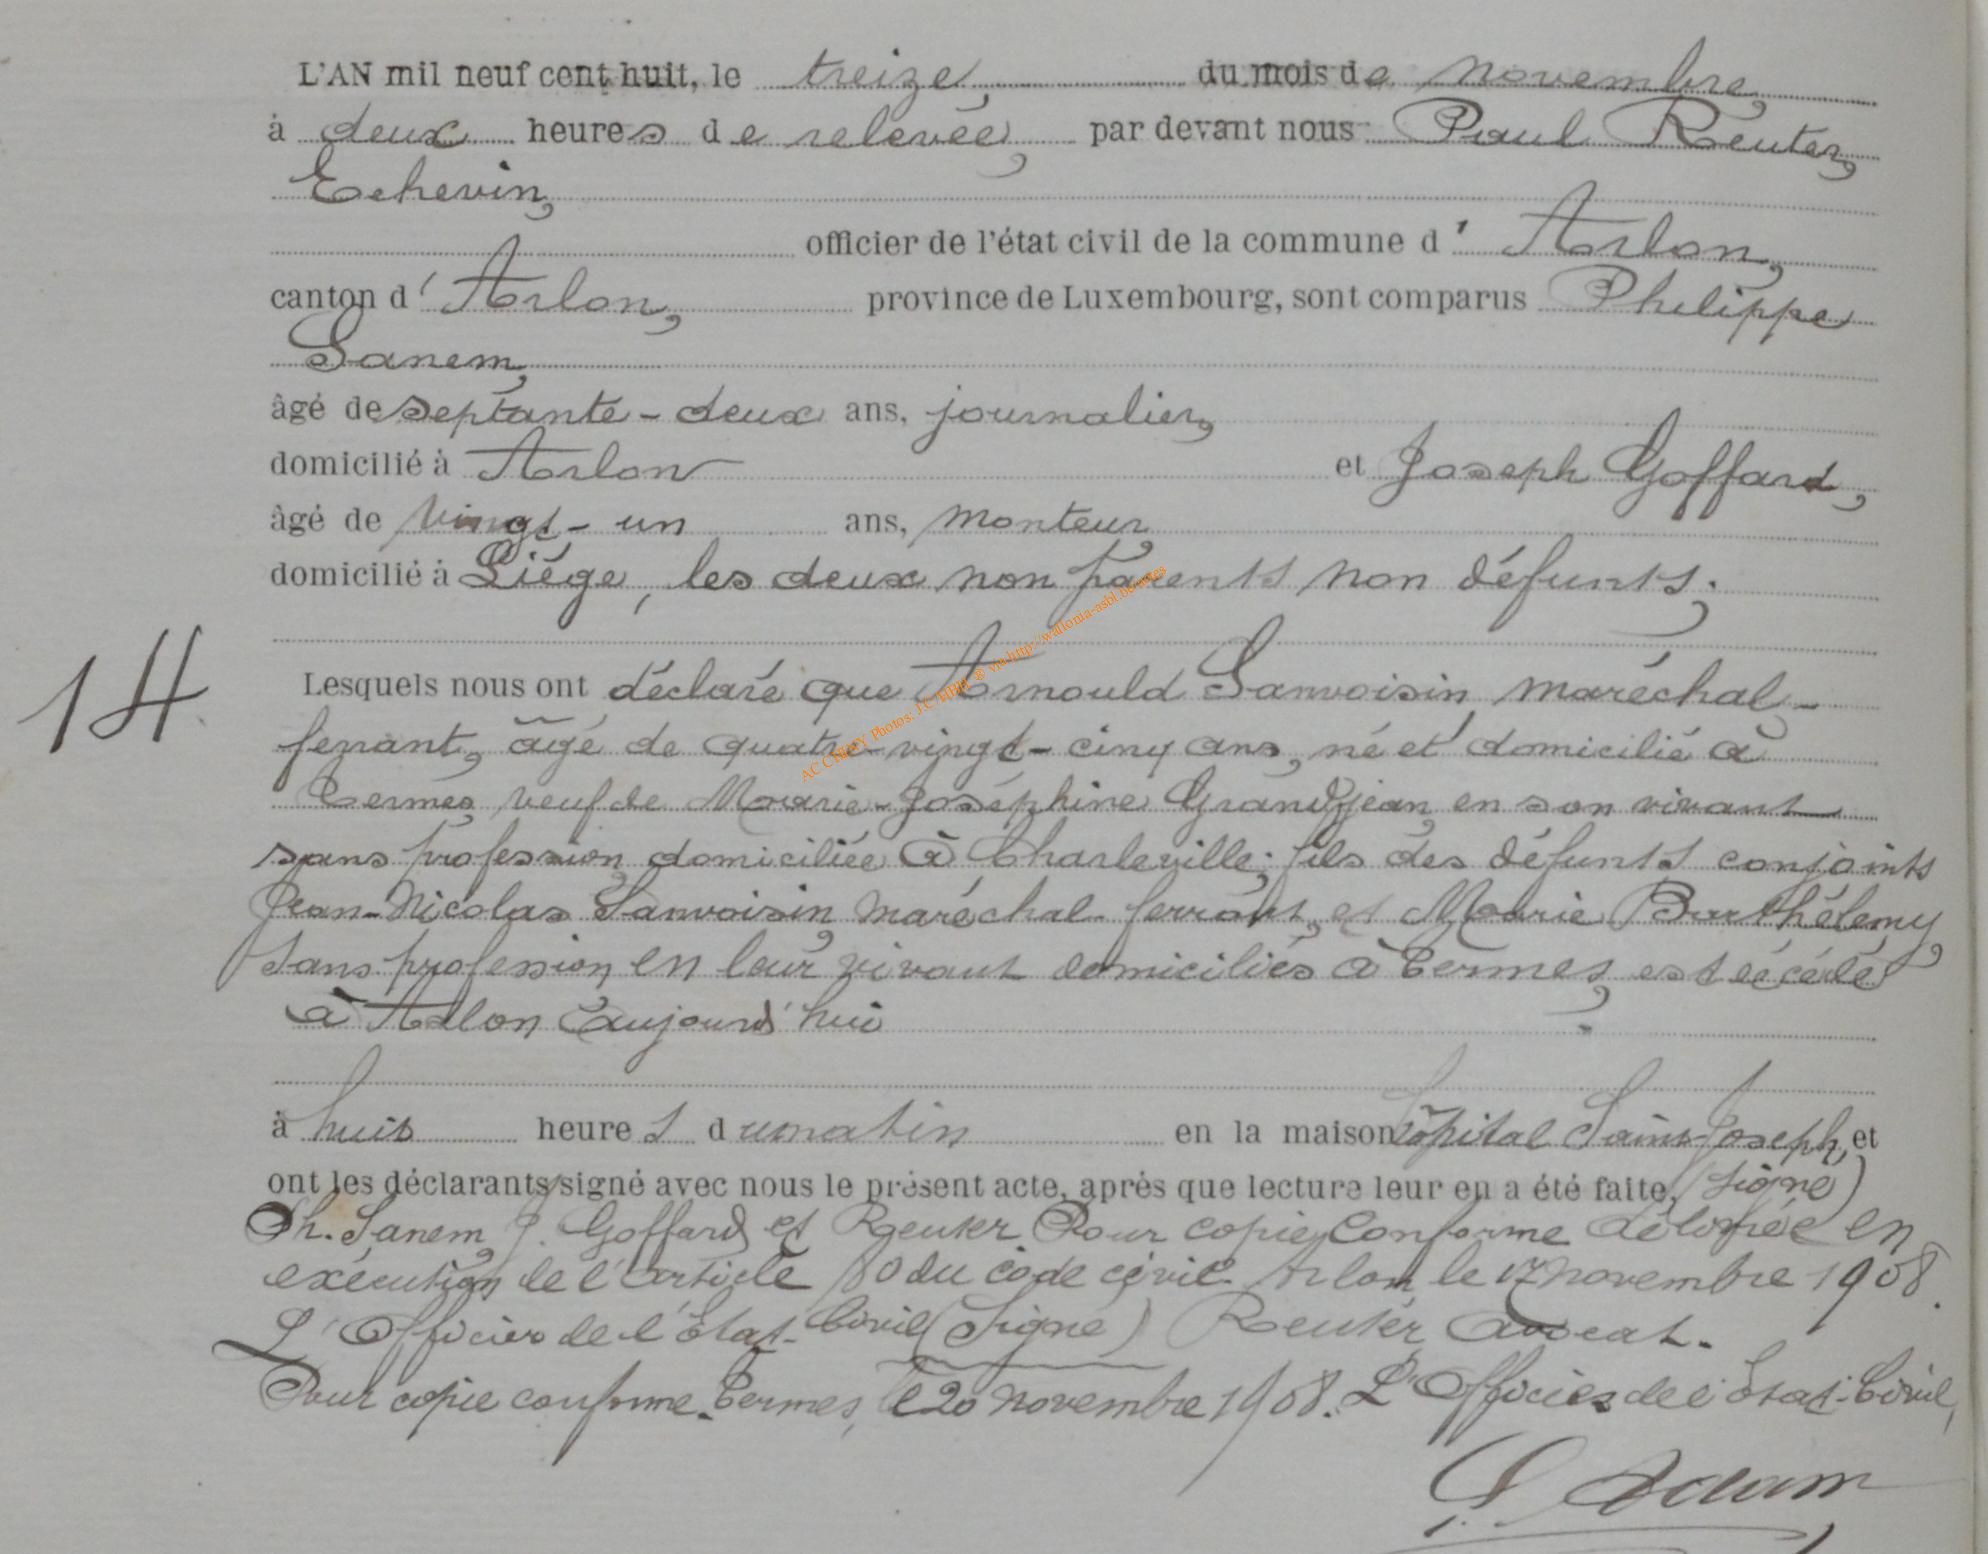 L'AN mil neuf cent huit, le treize, du mois de novembre,
à deux heures de relevée, par devant nous Paul Reuter,
Echevin,
officier de l'état civil de la commune d' Arlon,
canton d' Arlon, province de Luxembourg, sont comparus Philippe
Sanem,
âgé de septante-deux ans, journalier,
domicilié à Arlon et Joseph Goffard,
âgé de vingt-un ans, monteur,
domicilié à Liége, les deux non parents non défunts.
14
Lesquels nous ont déclaré que Arnould Sanvoisin, maréchal-
ferrant, âgé de quatre-vingt-cinq ans, né et domicilié à
Termes, veuf de Marie-Joséphine Grandjean, en son vivant
sans profession, domiciliée à Charleville; fils des défunts conjoints
Jean-Nicolas Sanvoisin, maréchal-ferrant, et Marie Barthélemy,
sans profession, en leur vivant domiciliés à Termes, est décédé
à Arlon aujourd'hui
à huit heures du matin en la maison hôpital Saint-Joseph, et
ont les déclarants signé avec nous le présent acte, après que lecture leur en a été faite, (signé)
Ph. Sanem, J. Goffard et Reuter Pour copie conforme délivrée en
exécution de l'article 80 du code civil. Arlon, le 17 novembre 1908.
L'Officier de l'Etat-Civil (Signé) Reuter avocat.
Pour copie conforme. Termes, le 20 novembre 1908. L'Officier de l'Etat-Civil,
Adam
AC CHINY Photos: J.C. ® via http://wallonia-asbl.be/actes